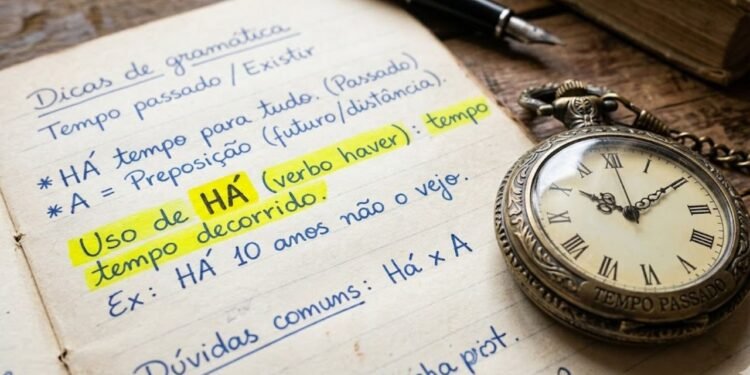 Dicas de gramática
Tempo passado / Existir
* HÁ tempo para tudo. (Passado)
* A = Preposição (futuro/distância).
Uso de HÁ (verbo haver): tempo
tempo decorrido.
Ex: HÁ 10 anos não o vejo.
Dúvidas comuns: Há x A
XII
TEMPO PASSADO